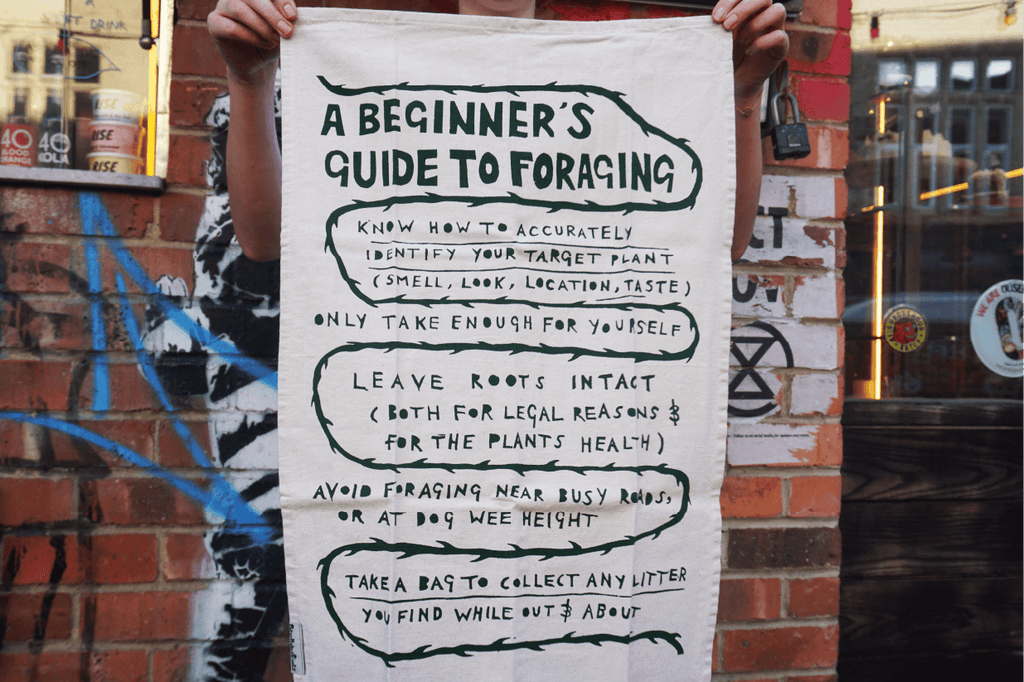 A BEGINNER'S
GUIDE TO FORAGING
KNOW HOW TO ACCURATELY
IDENTIFY YOUR TARGET PLANT
(SMELL, LOOK, LOCATION, TASTE)
ONLY TAKE ENOUGH FOR YOURSELF
LEAVE ROOTS INTACT
(BOTH FOR LEGAL REASONS &
FOR THE PLANTS HEALTH)
AVOID FORAGING NEAR BUSY ROADS,
OR AT DOG WEE HEIGHT
TAKE A BAG TO COLLECT ANY LITTER
YOU FIND WHILE OUT & ABOUT
FT DRINK
40
40
WE ARE